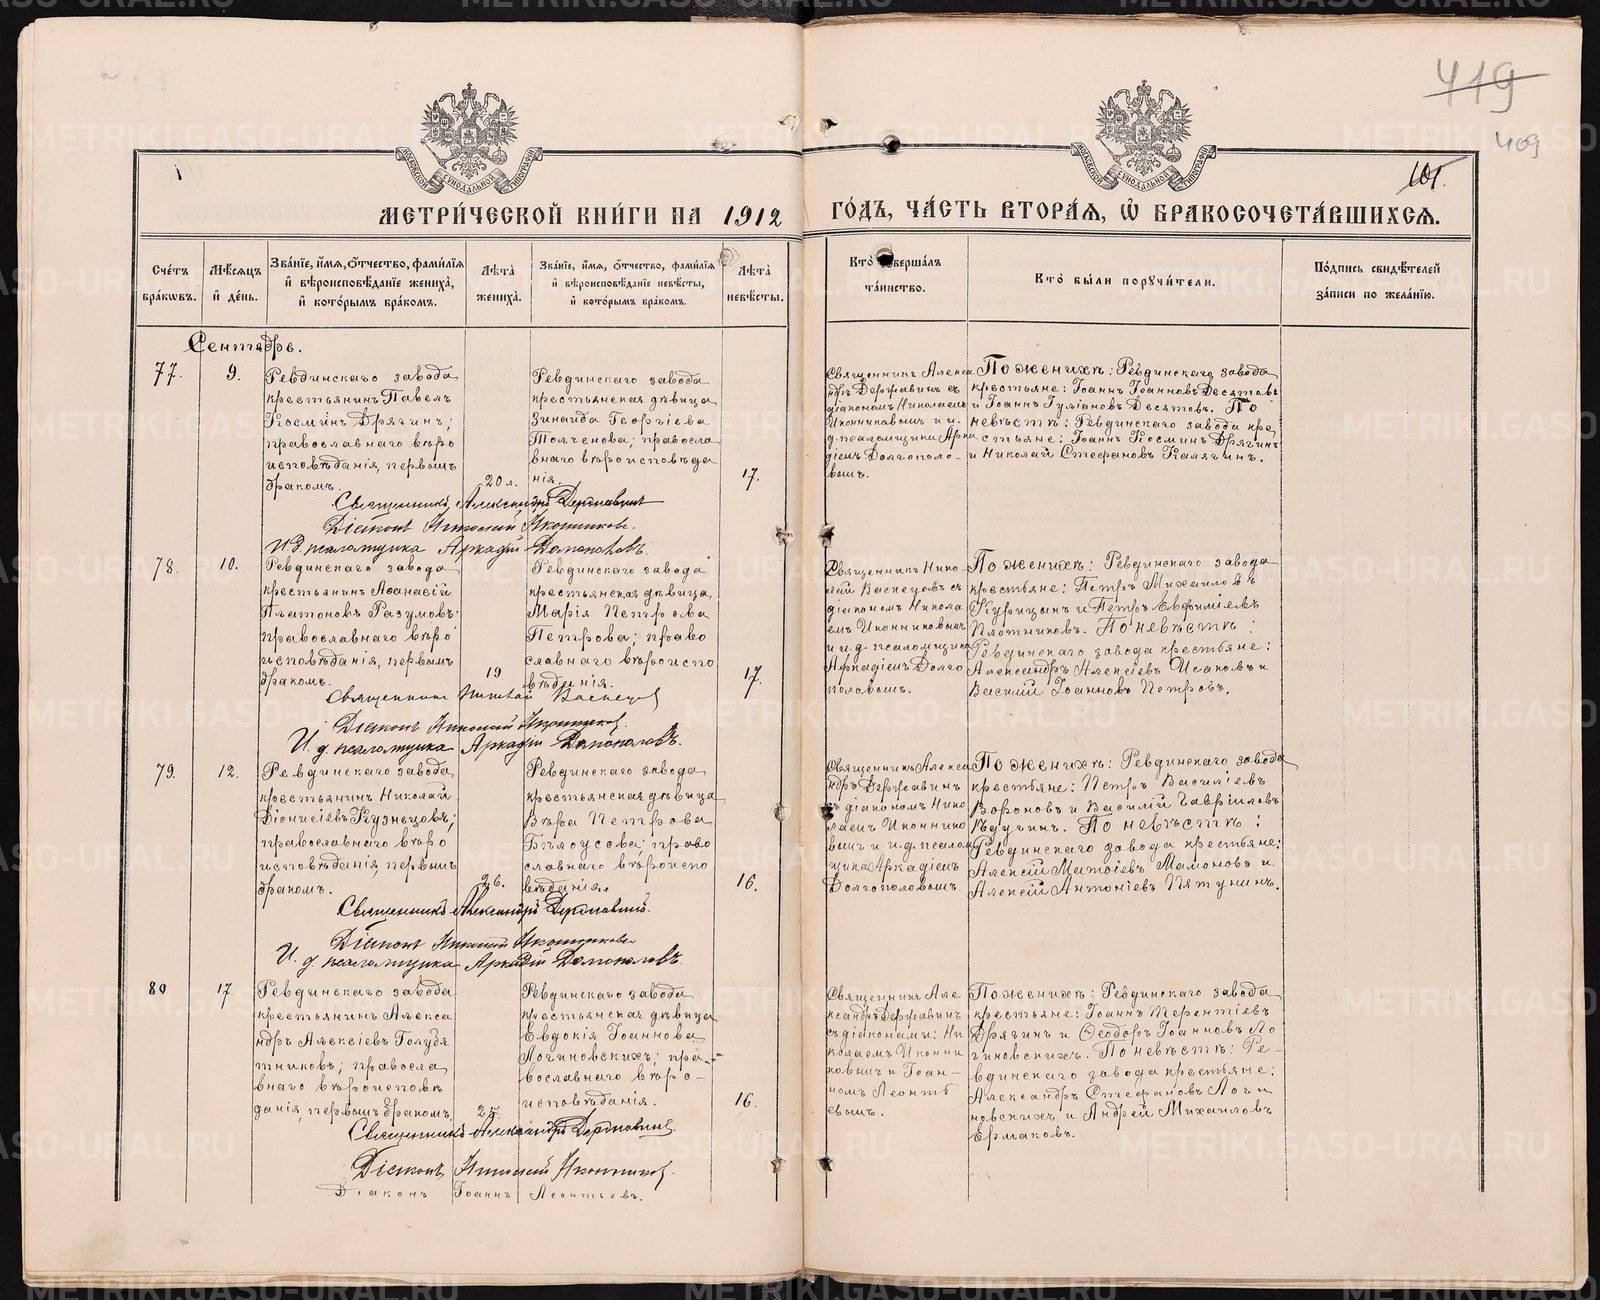 419
409
101.
МЕТРИ́ЧЕСКОЙ КНИ́ГИ НА 1912 ГО́ДЪ, ЧА́СТЬ ВТОРА́Я, Ѡ БРАКОСОЧЕТА́ВШИХСЯ.
Сче́тъ бра́кѡвъ.
Мѣ́сяцъ и де́нь.
Зва́нїе, и́мя, о́тчество, фами́лїя и вѣроисповѣ́данїе жениха̀, и кото́рымъ бра́комъ.
Лѣ́та жениха̀.
Зва́нїе, и́мя, о́тчество, фами́лїя и вѣроисповѣ́данїе невѣ́сты, и кото́рымъ бра́комъ.
Лѣ́та невѣ́сты.
Кто̀ соверша́лъ та́инство.
Кто̀ бы́ли порꙋчи́тели.
По́дпись свидѣ́телей за́писи по жела́нїю.
Сентябрь.
77.
9.
Ревдинскаго завода
крестьянинъ Павелъ
Космин Дрягинъ;
православнаго вѣро
исповѣданія, первымъ
бракомъ.
20 л.
Ревдинскаго завода
крестьянская дѣвица
Зинаида Георгіева
Толченова; правосла
внаго вѣроисповѣда
нія.
17.
Священникъ Алекса
ндръ Державинъ съ
діакономъ Николаемъ
Иконниковымъ и и.
д. псаломщики Арка
діемъ Долгополо-
вымъ.
По женихѣ: Ревдинскаго завода
крестьяне: Іоаннъ Іоанновъ Десятовъ
и Іоаннъ Іуліановъ Десятовъ. По
невѣстѣ: Ревдинскаго завода кре
стьяне: Іоаннъ Космин Дрягинъ
и Николай Стефановъ Калягинъ.
Священникъ Александръ Державинъ
Діаконъ Николай Иконниковъ.
И.д. псаломщика Аркадій Долгополовъ.
78.
10.
Ревдинскаго завода
крестьянинъ Аѳанасій
Платоновъ Разумовъ;
православнаго вѣро
исповѣданія, первымъ
бракомъ.
19
Ревдинскаго завода
крестьянская дѣвица,
Марія Петрова
Петрова; право
славнаго вѣроиспо
вѣданія.
17.
Священникъ Нико-
лай Васнецовъ съ
діакономъ Никола
емъ Иконниковымъ
и и.д. псаломщика
Аркадіемъ Долго
половымъ.
По женихѣ: Ревдинскаго завода
крестьяне: Петръ Михаиловъ
Курицынъ и Петръ Евфиміевъ
Плотниковъ. По невѣстѣ:
Ревдинскаго завода крестьяне:
Александръ Алексіевъ Исаковъ и
Василій Іоанновъ Петровъ.
Священникъ Николай Васнецовъ
Діаконъ Николай Иконниковъ.
И. д. псаломщика Аркадій Долгополовъ.
79.
12.
Ревдинскаго завода
крестьянинъ Николай
Діонисіевъ Кузнецовъ;
православнаго вѣро
исповѣданія, первымъ
бракомъ.
26.
Ревдинскаго завода
крестьянская дѣвица
Вѣра Петрова
Бѣлоусова; право
славнаго вѣроиспо
вѣданія.
16.
Священникъ Алекса
ндръ Державинъ
съ діакономъ Нико
лаемъ Иконнико
вымъ и и.д. псалом
щика Аркадіемъ
Долгополовымъ.
По женихѣ: Ревдинскаго завода
крестьяне: Петръ Василіевъ
Вороновъ и Василій Гавріиловъ
По невѣстѣ:
Ревдинскаго завода крестьяне:
Алексій Матѳіевъ Мамоновъ и
Алексій Антоніевъ Пятунинъ.
Священникъ Александръ Державинъ.
Діаконъ Николай Иконниковъ
И. д. псаломщика Аркадій Долгополовъ.
80
17.
Ревдинскаго завода
крестьянинъ Алекса
ндръ Алексіевъ Голубя
тниковъ; правосла
внаго вѣроисповѣ
данія, первымъ бракомъ.
25.
Ревдинскаго завода
крестьянская дѣвица
Евдокія Іоаннова
Логиновскихъ; пра-
вославнаго вѣро-
исповѣданія.
16.
Священникъ Але
ксандръ Державинъ
съ діаконами: Ни
колаемъ Иконни
ковымъ и Іоан-
номъ Леонть
евымъ.
По женихѣ: Ревдинскаго завода
крестьяне: Іоаннъ Терентіевъ
Дрягинъ и Ѳеодоръ Іоанновъ Ло
гиновскихъ. По невѣстѣ: Ре-
вдинскаго завода крестьяне:
Александръ Стефановъ Логи
новскихъ и Андрей Михаиловъ
Ермаковъ.
Священникъ Александръ Державинъ.
Діаконъ Николай Иконниковъ.
Діаконъ Іоаннъ Леонтьевъ.